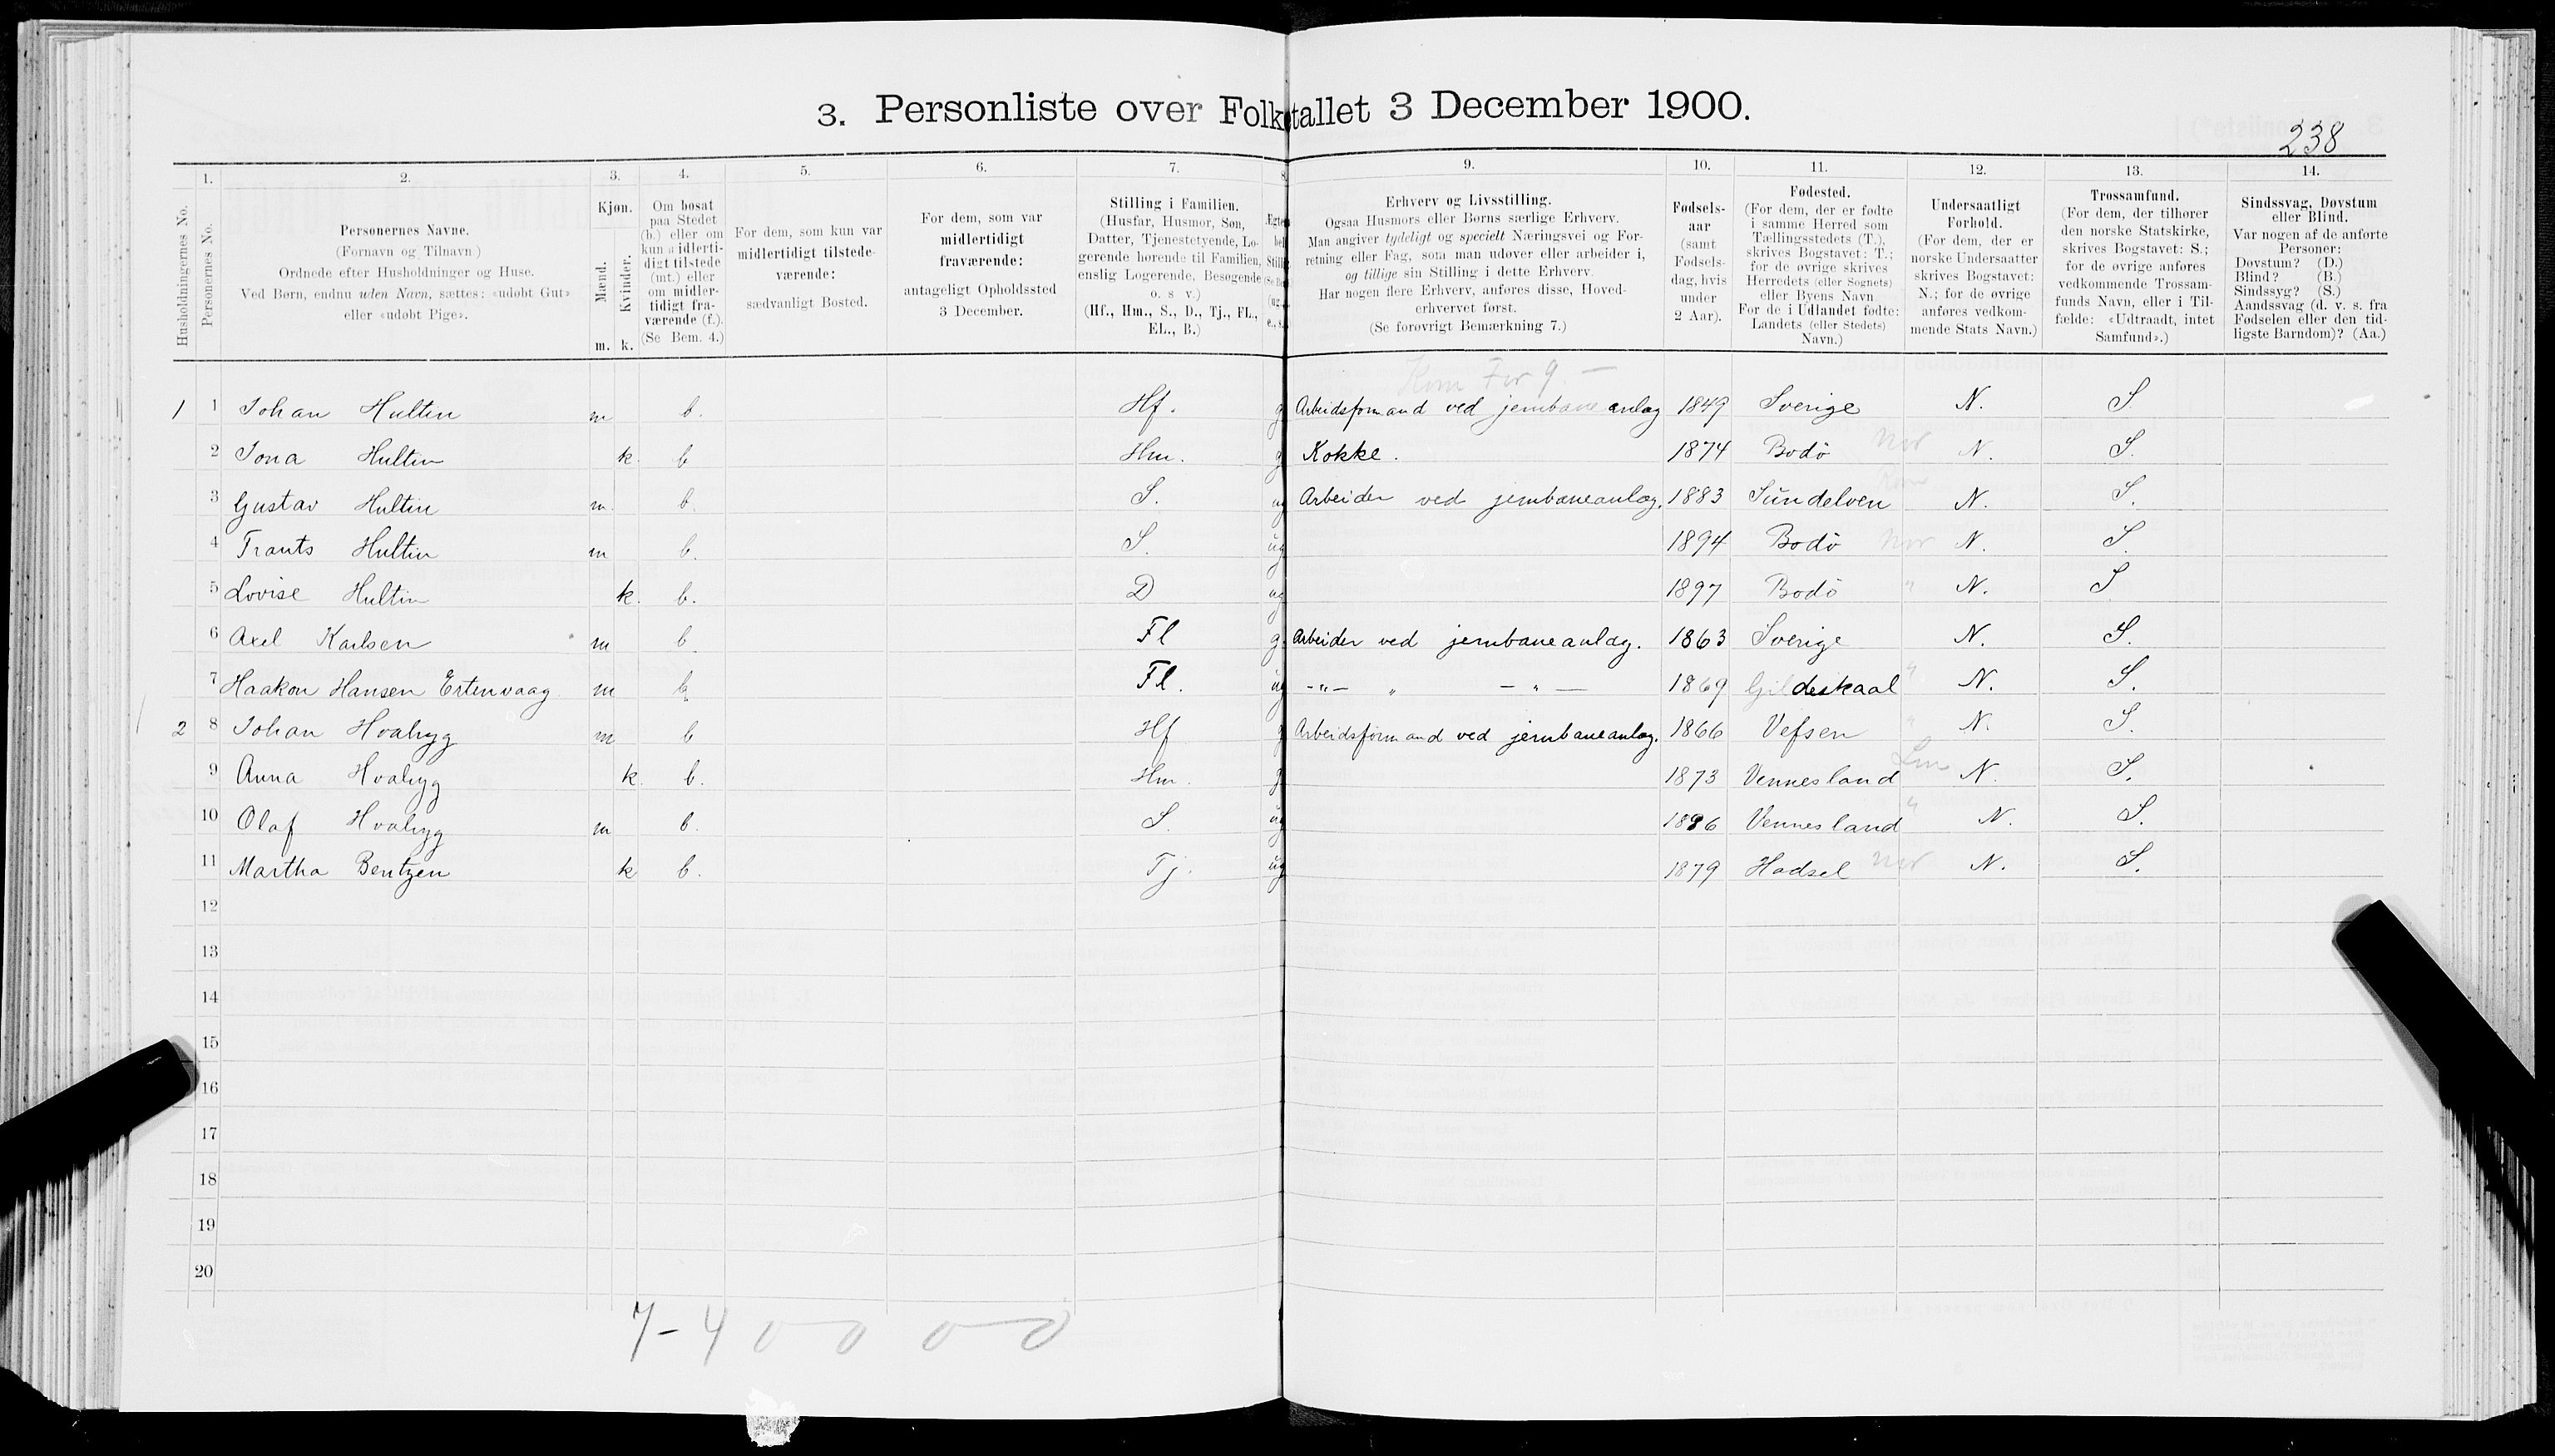 3. Personliste over Folketallet 3 December 1900.
238
Husholdningernes No.
1.
Personernes No.
2.
Personernes Navne.
(Fornavn og Tilnavn)
Ordnede efter Husholdninger og Huse.
Ved Børn, endnu uden Navn, sættes: «udøbt Gut»
eller «udøbt Pige».
3.
Kjøn.
Mænd.
Kvinder.
m. k.
4.
Om bosat
paa Stedet
(b.) eller om
kun midlerti-
digt tilstede
(mt.) eller
om midler-
tidigt fra-
værende (f.).
(Se Bem. 4.)
5.
For dem, som kun var
midlertidigt tilstede-
værende:
sædvanligt Bosted.
6.
For dem, som var
midlertidigt
fraværende:
antageligt Opholdssted
3 December.
7.
Stilling i Familien.
(Husfar, Husmor, Søn,
Datter, Tjenestetyende, Lo-
gerende hørende til Familien,
enslig Logerende, Besøgende
o. s v.)
(Hf., Hm., S., D., Tj., FL.,
EL., B.)
9.
Erhverv og Livsstilling.
Ogsaa Husmors eller Børns særlige Erhverv.
Man angiver tydeligt og specielt Næringsvei og For-
retning eller Fag, som man udøver eller arbeider i,
og tillige sin Stilling i dette Erhverv.
Har nogen flere Erhverv, anføres disse, Hoved-
erhvervet først.
(Se forøvrigt Bemærkning 7.)
10.
Fødsels-
aar
(samt
Fødsels-
dag, hvis
under
2 Aar).
11.
Fødested.
(For dem, der er fødte
i samme Herred som
Tællingsstedets (T.),
skrives Bogstavet: T.;
for de øvrige skrives
Herredets (eller Sognets)
eller Byens Navn
For de i Udlandet fødte:
Landets (eller Stedets)
Navn.)
12.
Undersaatligt
Forhold.
(For dem, der er
norske Undersaatter
skrives Bogstavet:
N.; for de øvrige
anføres vedkom-
mende Stats Navn.)
13.
Trossamfund.
(For dem, der tilhører
den norske Statskirke,
skrives Bogstavet: S.;
for de øvrige anføres
vedkommende Trossam-
funds Navn, eller i Til-
fælde: «Udtraadt, intet
Samfund».)
14.
Sindssvag, Døvstum
eller Blind.
Var nogen af de anførte
Personer:
Døvstum? (D.)
Blind? (B.)
Sindssyg? (S.)
Aandssvag (d. v. s. fra
Fødselen eller den tid-
ligste Barndom)? (Aa.)
1 1 Johan Hultin m b. Hf. g Arbeidsformand ved jernbaneanlæg 1849 Sverige N. S.
2 Jona Hultin k. b Hm. g Kokke. 1874 Bodö Nor N. S.
3 Gustav Hultin m. b. S. ug Arbeider ved jernbaneanlæg. 1883 Sündelven N. S.
4 Frants Hultin m b. S. ug 1894 Bodö Nor N. S.
5 Lovise Hultin k. b. D ug 1897 Bodö " N. S
6 Axel Karlsen m b. Fl g. Arbeider ved jernbaneanlæg. 1863 Sverige N. S.
7 Haakon Hansen Ertenvaag m b. Fl. ug -"- " -"- 1869 Gildeskaal " N. S.
2 8 Johan Hvalryg m b Hf g Arbeidsformand ved jernbaneanlæg. 1866 Vefsen " N. S.
9 Anna Hvalryg k. b. Hm. g 1873 Vennesland N. S.
10 Olaf Hvalryg m b. S. ug 1896 Vennesland " N. S.
11 Martha Bentzen k b. Tj. ug 1879 Hadsel Nor N. S.
12
13
14
15
16
17
18
19
20
7-4 0 0 0 0